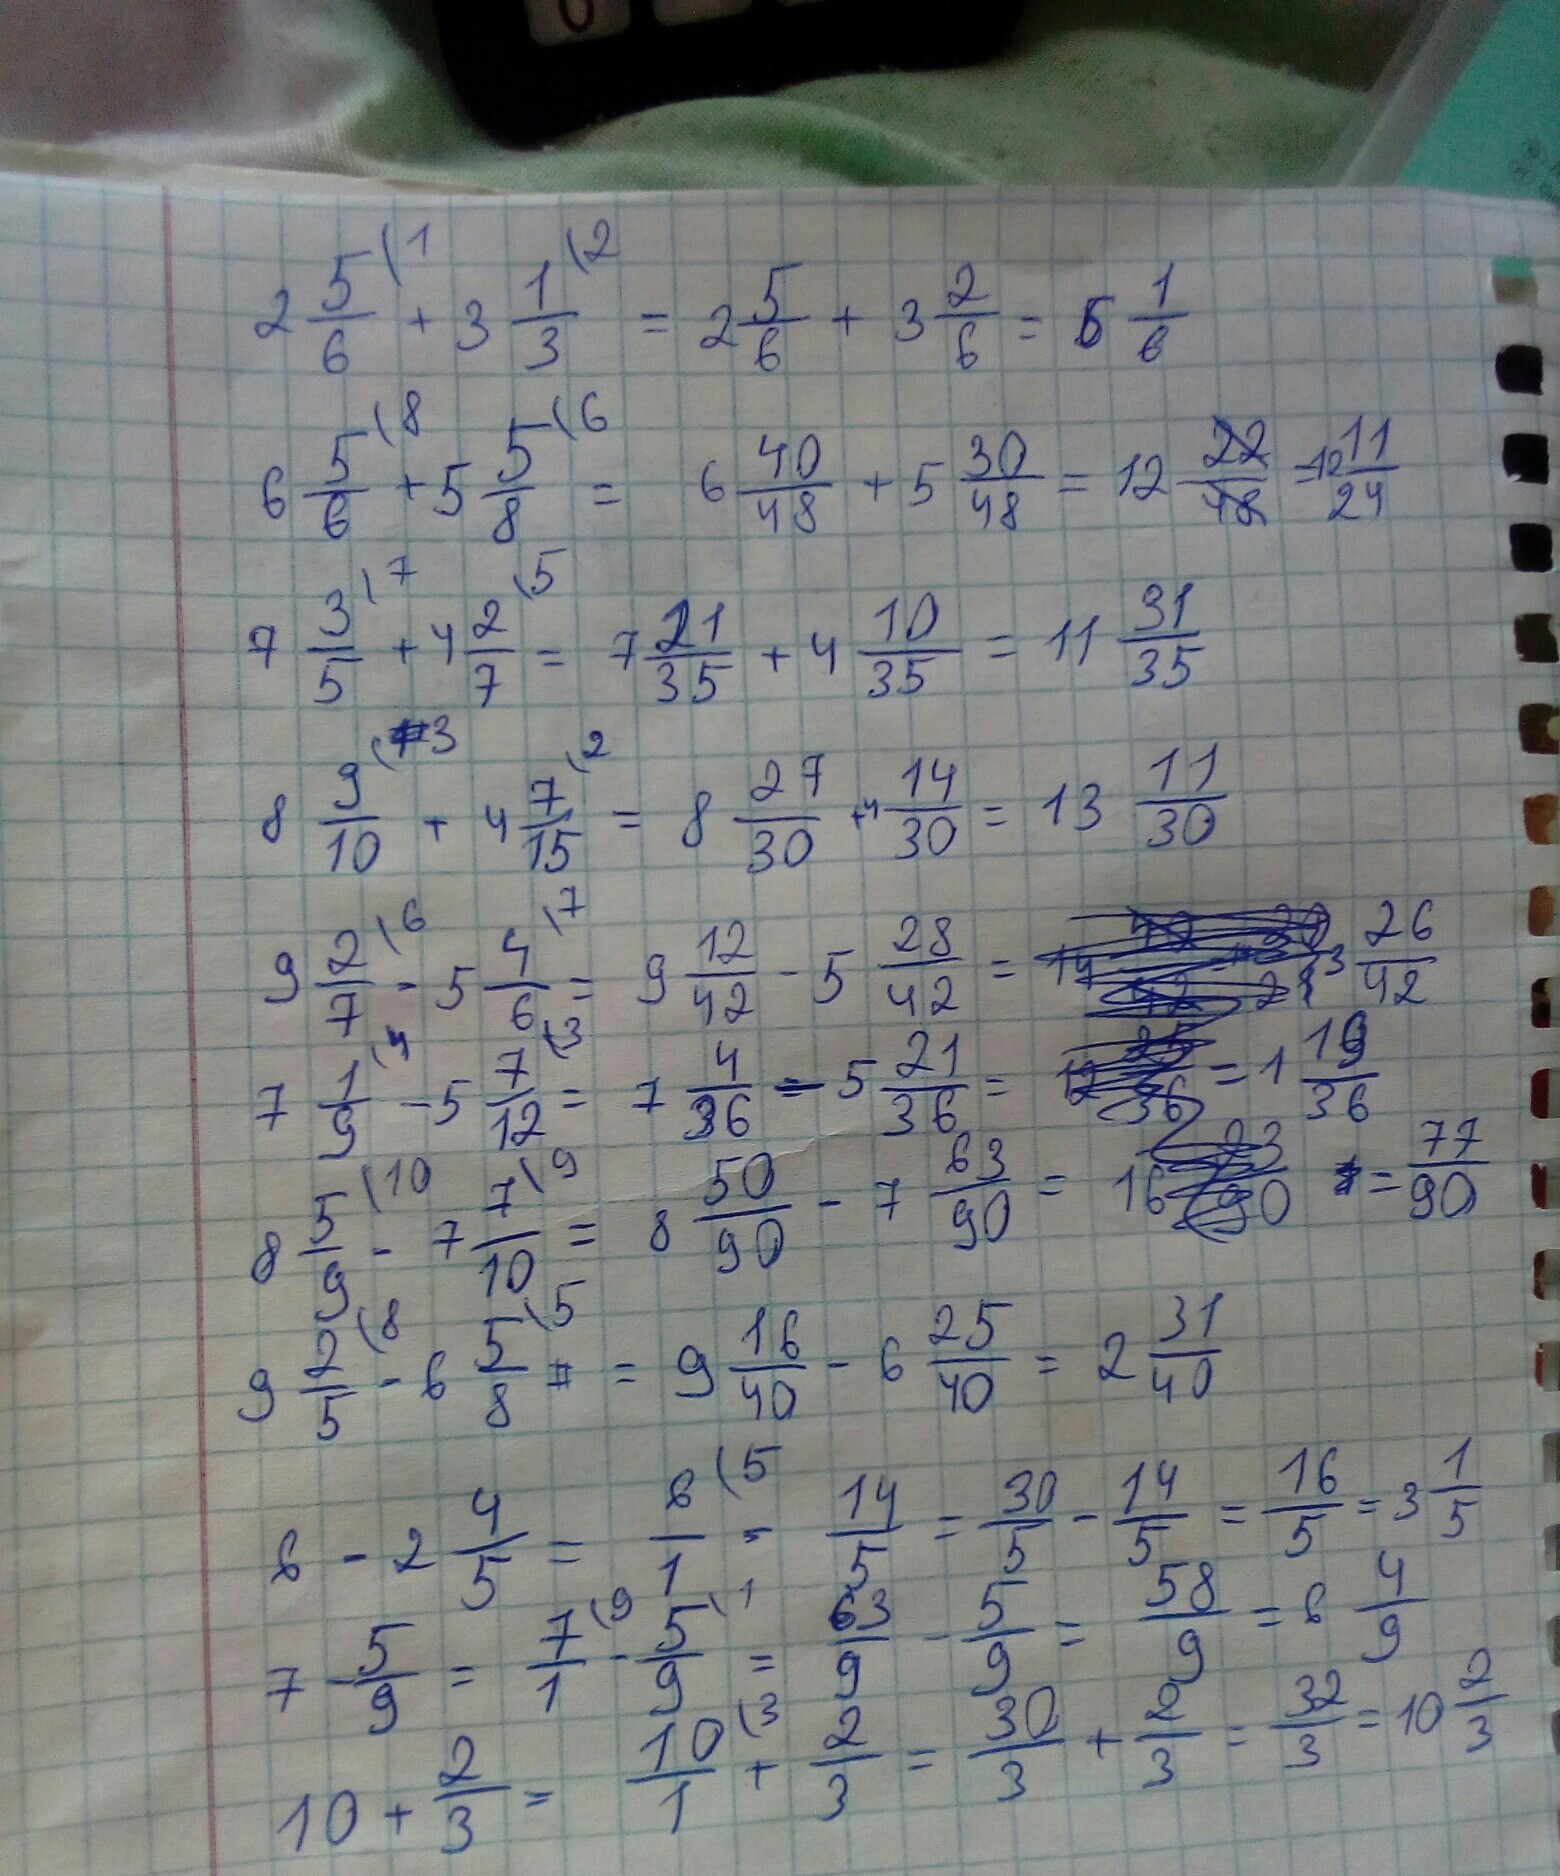 2 5/6 (1 + 3 1/3 (2 = 2 5/6 + 3 2/6 = 6 1/6
6 5/6 (8 + 5 5/8 (6 = 6 40/48 + 5 30/48 = 12 22/48 = 12 11/24
7 3/5 (7 + 4 2/7 (5 = 7 21/35 + 4 10/35 = 11 31/35
8 9/10 (3 + 4 7/15 (2 = 8 27/30 + 4 14/30 = 13 11/30
9 2/7 (6 - 5 4/6 (7 = 9 12/42 - 5 28/42 = 3 26/42
7 1/9 (4 - 5 7/12 (3 = 7 4/36 - 5 21/36 = = 1 19/36
8 5/9 (10 - 7 7/10 (9 = 8 50/90 - 7 63/90 = 16 = 77/90
9 2/5 (8 - 6 5/8 (5 = 9 16/40 - 6 25/40 = 2 31/40
6 - 2 4/5 = 6/1 (5 - 14/5 = 30/5 - 14/5 = 16/5 = 3 1/5
7 - 5/9 = 7/1 (9 - 5/9 (1 = 63/9 - 5/9 = 58/9 = 6 4/9
10 + 2/3 = 10/1 (3 + 2/3 = 30/3 + 2/3 = 32/3 = 10 2/3